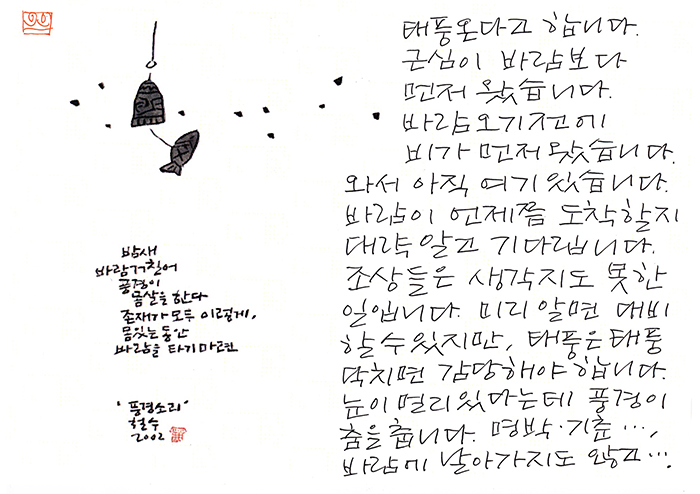 밤새
바람거칠어
풍경이
몸살을 한다
존재가 모두 이렇게,
몸있는동안
바람을 타기 마련
'풍경소리'
철수
2002
태풍온다고 합니다.
근심이 바람보다
먼저 왔습니다.
바람오기전에
비가 먼저 왔습니다.
와서 아직 여기 있습니다.
바람이 언제쯤 도착할지
대략 알고 기다립니다.
조상들은 생각지도 못한
일입니다. 미리 알면 대비
할 수 있지만, 태풍은 태풍
닥치면 감당해야 합니다.
눈이 멀리 있다는데 풍경이
춤을 춥니다. 명박·기춘 …,
바람에 날아가지도 않고….